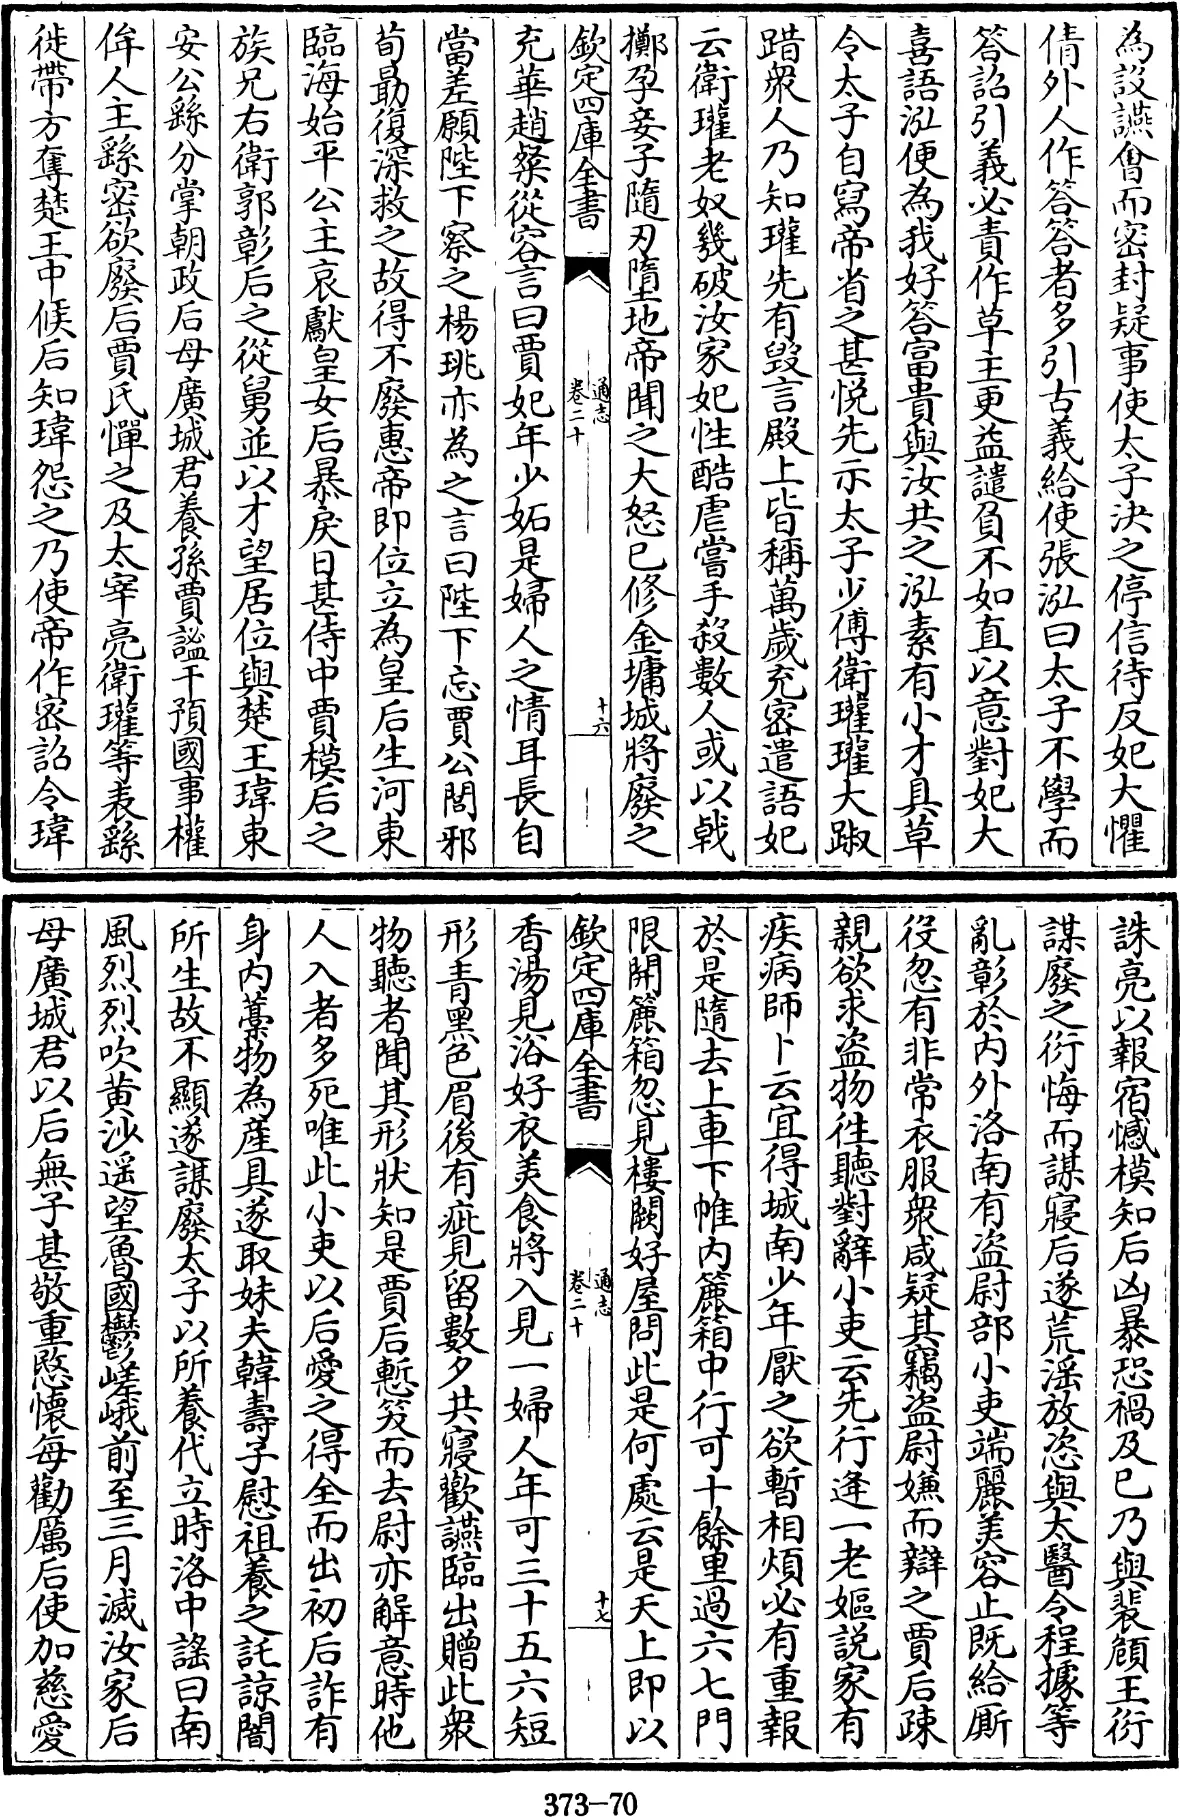 為設讌會而密封疑事使太子決之停信待反妃大懼
倩外人作答答者多引古義給使張泓曰太子不學而
答詔引義必責作草主更益譴負不如直以意對妃大
喜語泓便為我好答富貴與汝共之泓素有小才具草
令太子自寫帝省之甚悅先示太子少傅衛瓘瓘大踧
踖衆人乃知瓘先有毀言殿上皆稱萬歲充密遣語妃
云衛瓘老奴幾破汝家妃性酷虐嘗手殺數人或以戟
擲孕妾子隨刃墮地帝聞之大怒已修金墉城將廢之
欽定四庫全書
通志
卷二十
十六
充華趙粲從容言曰賈妃年少妬是婦人之情耳長自
當差願陛下察之楊珧亦為之言曰陛下忘賈公閭邪
荀勗復深救之故得不廢惠帝即位立為皇后生河東
臨海始平公主哀獻皇女后暴戾日甚侍中賈模后之
族兄右衛郭彰后之從舅並以才望居位與楚王瑋東
安公繇分掌朝政后母廣城君養孫賈謐干預國事權
侔人主繇密欲廢后賈氏憚之及太宰亮衛瓘等表繇
徙帶方奪楚王中候后知瑋怨之乃使帝作密詔令瑋
誅亮以報宿憾模知后凶暴恐禍及已乃與裴頠王衍
謀廢之衍悔而謀寢后遂荒淫放恣與太醫令程據等
亂彰於內外洛南有盜尉部小吏端麗美容止既給廝
役忽有非常衣服衆咸疑其竊盜尉嫌而辯之賈后疎
親欲求盜物往聽對辭小吏云先行逢一老嫗說家有
疾病師卜云宜得城南少年厭之欲暫相煩必有重報
於是隨去上車下帷內簏箱中行可十餘里過六七門
限開簏箱忽見樓闕好屋問此是何處云是天上即以
欽定四庫全書
通志
卷二十
十七
香湯見浴好衣美食將入見一婦人年可三十五六短
形青黑色眉後有疵見留數夕共寢歡讌臨出贈此衆
物聽者聞其形狀知是賈后慙笑而去尉亦解意時他
人入者多死唯此小吏以后愛之得全而出初后詐有
身內藁物為產具遂取妹夫韓壽子慰祖養之託諒闇
所生故不顯遂謀廢太子以所養代立時洛中謠曰南
風烈烈吹黃沙遥望魯國鬱嵯峨前至三月滅汝家后
母廣城君以后無子甚敬重愍懷每勸厲后使加慈愛
373-70